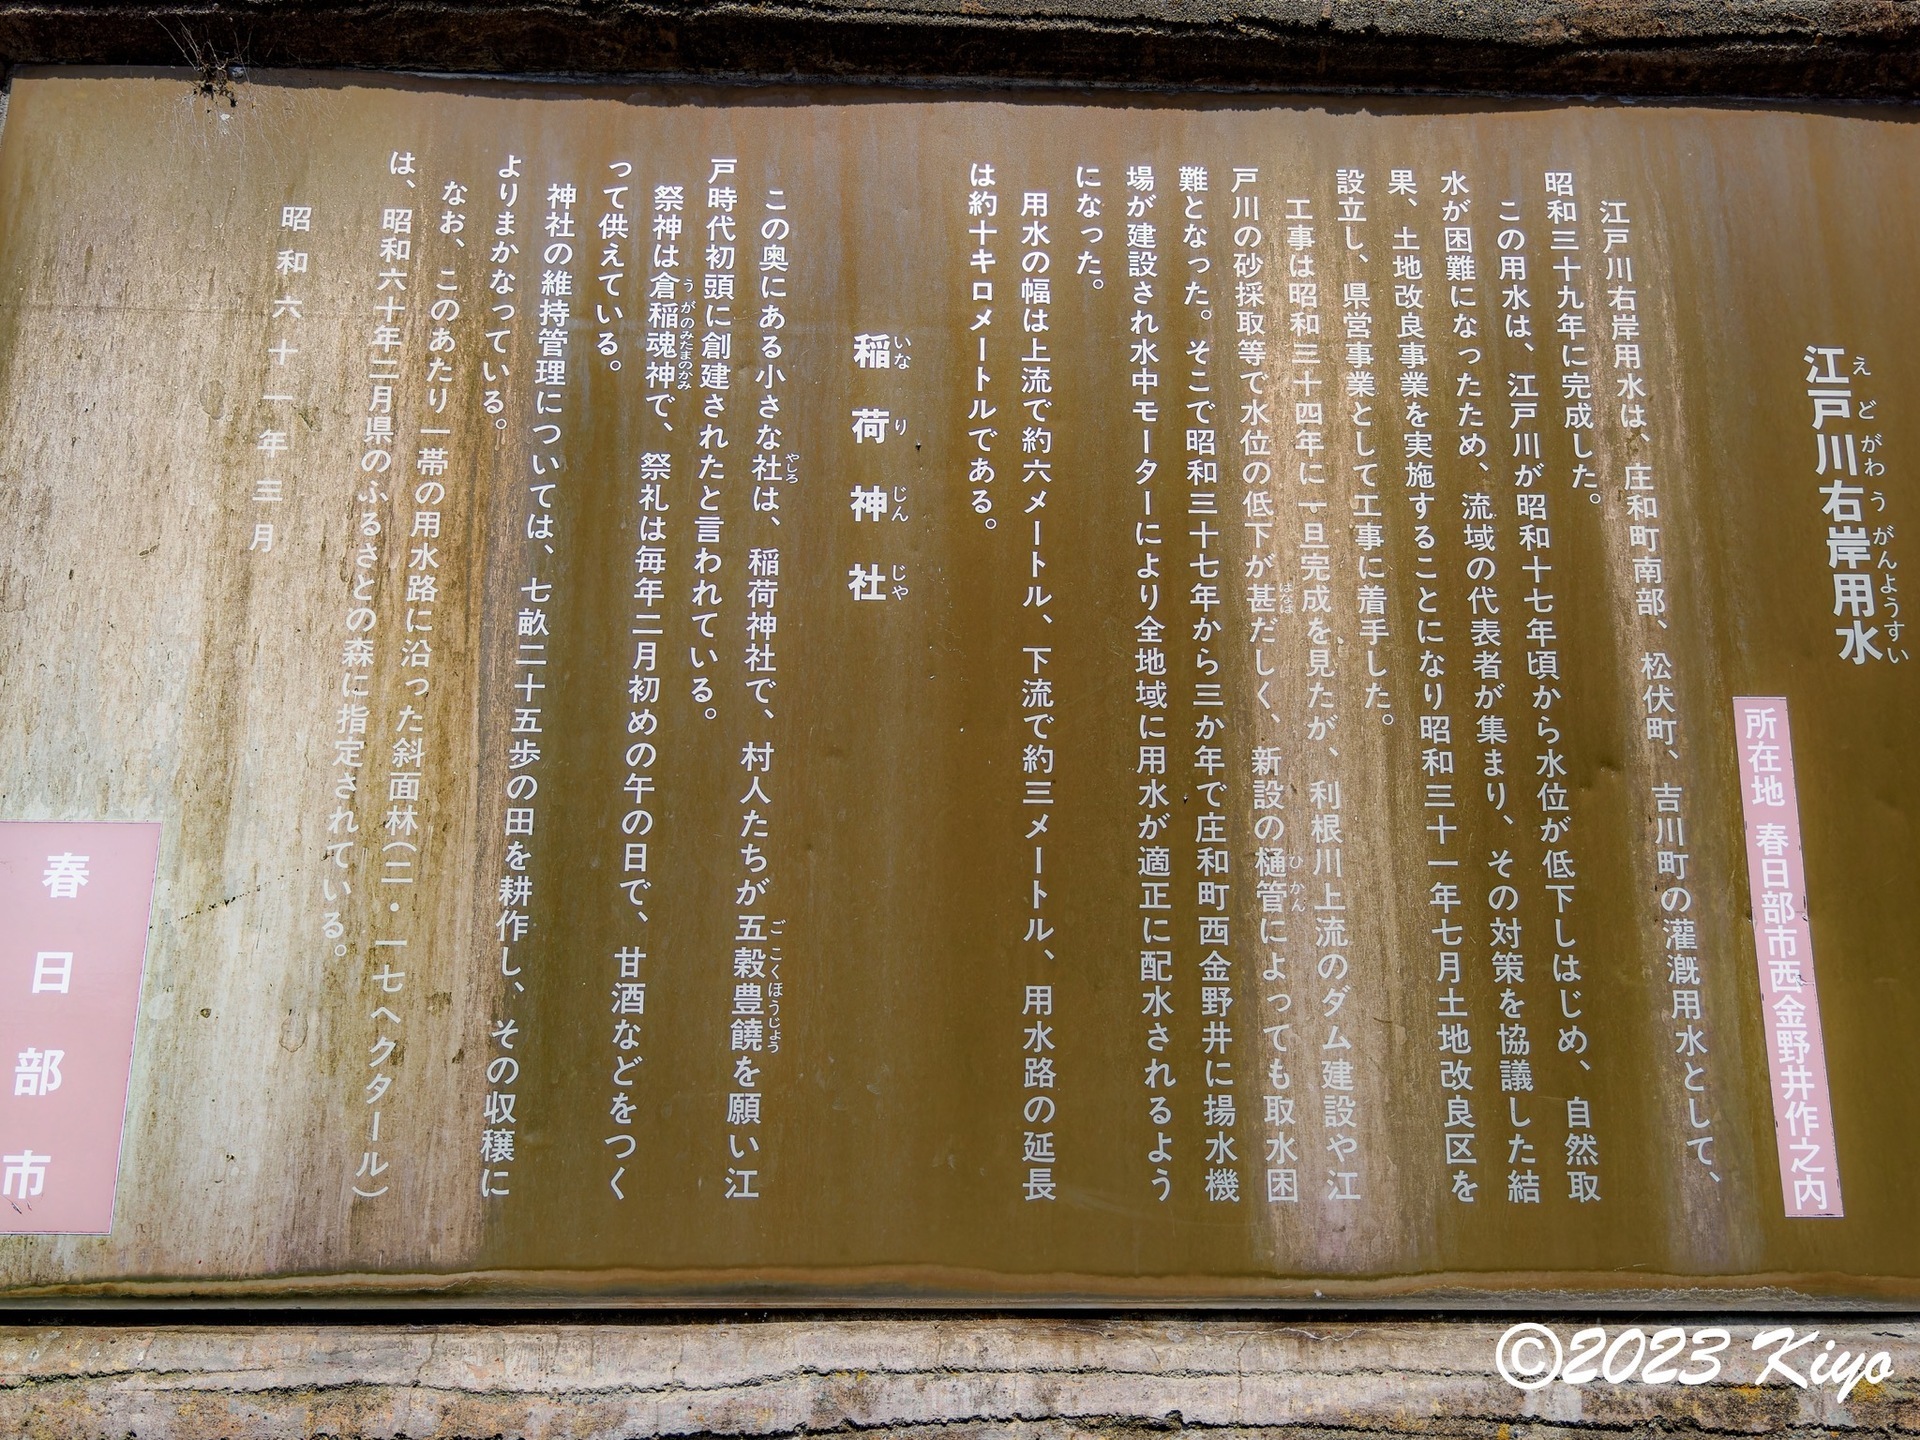 江戸川右岸用水
えどがわうがんようすい
所在地 春日部市西金野井作之内
江戸川右岸用水は、庄和町南部、松伏町、吉川町の灌漑用水として、
昭和三十九年に完成した。
この用水は、江戸川が昭和十七年頃から水位が低下しはじめ、自然取
水が困難になったため、流域の代表者が集まり、その対策を協議した結
果、土地改良事業を実施することになり昭和三十一年七月土地改良区を
設立し、県営事業として工事に着手した。
工事は昭和三十四年に一旦完成を見たが、利根川上流のダム建設や江
戸川の砂採取等で水位の低下が甚だしく、新設の樋管によっても取水困
はなは
ひかん
難となった。そこで昭和三十七年から三か年で庄和町西金野井に揚水機
場が建設され水中モーターにより全地域に用水が適正に配水されるよう
になった。
用水の幅は上流で約六メートル、下流で約三メートル、用水路の延長
は約十キロメートルである。
稲荷神社
いなりじんじや
この奥にある小さな社は、稲荷神社で、村人たちが五穀豊饒を願い江
やしろ
ごこくほうじよう
戸時代初頭に創建されたと言われている。
祭神は倉稲魂神で、祭礼は毎年二月初めの午の日で、甘酒などをつく
うがのみたまのかみ
って供えている。
神社の維持管理については、七畝二十五歩の田を耕作し、その収穣に
よりまかなっている。
なお、このあたり一帯の用水路に沿った斜面林(二・一七ヘクタール)
は、昭和六十年二月県のふるさとの森に指定されている。
昭和六十一年三月
春日部市
©2023 Kiyo